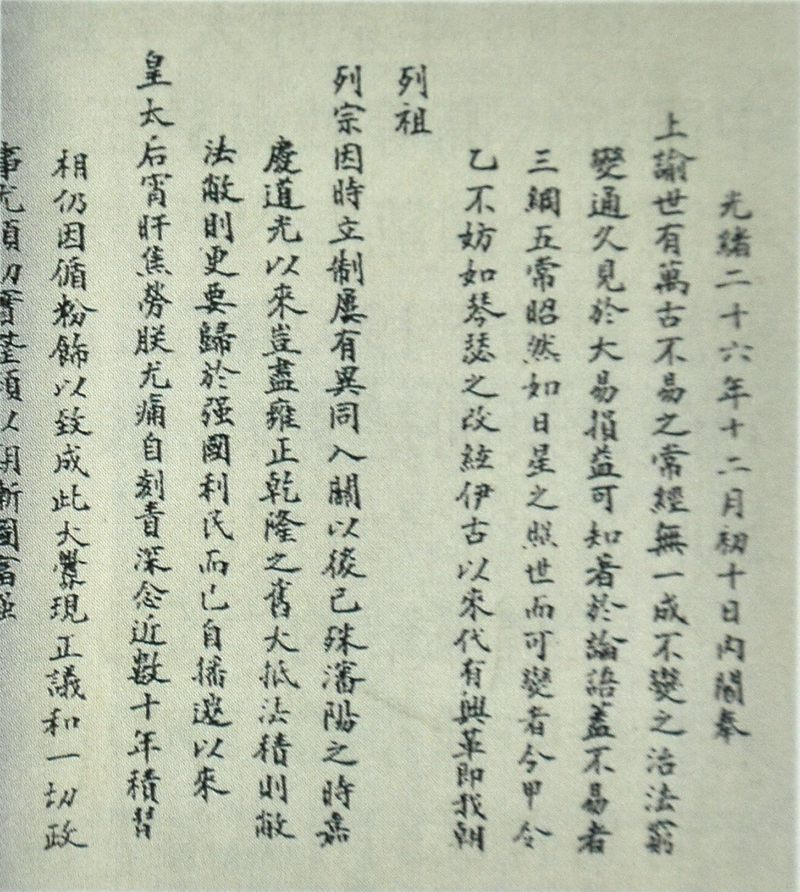 光緒二十六年十二月初十日內閣奉
上諭世有萬古不易之常經無一成不變之治法窮
變通久見於大易損益可知著於論語蓋不易者
三綱五常昭然如日星之照世而可變者令甲令
乙不妨如琴瑟之改絃伊古以來代有興革即我朝
列祖
列宗因時立制屢有異同入關以後已殊瀋陽之時嘉
慶道光以來豈盡雍正乾隆之舊大抵法積則敝
法敝則更要歸於强國利民而已自播遷以來
皇太后宵旰焦勞朕尤痛自刻責深念近數十年積習
相仍因循粉飾以致成此大釁現正議和一切政
事尤須切實整頓以期漸圖富强